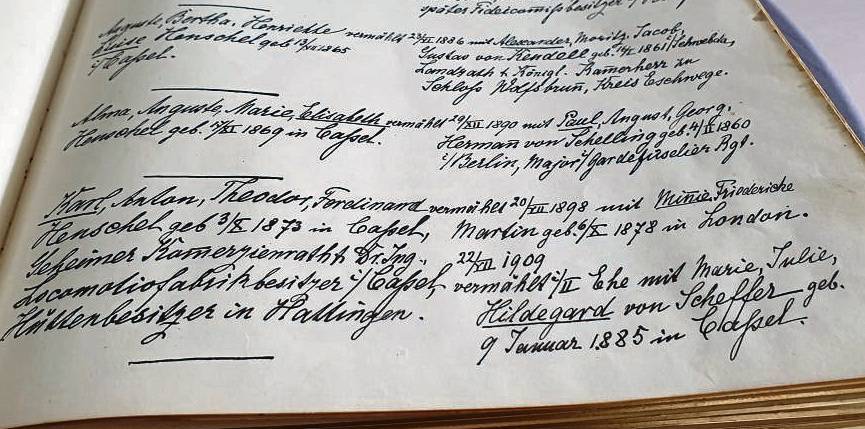 später Fideicomißbesitzer
Auguste, Bertha, Henriette vermählt 1886 mit Alexander, Moritz, Jacob,
Luise Henschel geb 1865
Gustav von Keudell geb. 1861 i/Schwebda,
i/Cassel.
Landrath & Königl. Kamerherr zu
Schloss Wolfsbrun, Kreis Eschwege.
Alma, Auguste, Marie, Elisabeth vermählt 29/XII 1890 mit Paul, August, Georg,
Henschel geb. /XI 1869 in Caßel.
Hermann von Schelling geb. 4/II 1860
i/Berlin, Major i/Gardefüselier Rgt.
Karl, Anton, Theodor, Ferdinand vermählt 20/VII 1898 mit Minie Friederiche
Henschel geb 3/X 1873 in Caßel,
Martin geb. 6/X 1878 in London.
Geheimer Kamerzienrath & Dr. Ing.,
22/VII 1909
Locomotiofabrikbesitzer i/Caßel,
vermählt i/II Ehe mit Marie, Julie,
Hüttenbesitzer in Hattingen.
Hildegard von Scheffer geb.
9 Januar 1885 in Caßel.